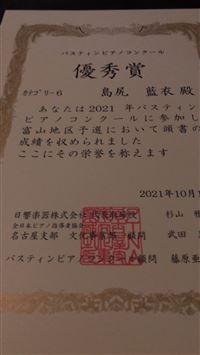 バスティンピアノコンクール
優秀賞
カテゴリー6 島尻 藍衣 殿
あなたは2021年バスティン
ピアノコンクールに参加し
富山地区予選において頭書の
成績を収められました
ここにその栄誉を称えます
2021年10月1
日響楽器株式会社 代表取締役 杉山
全日本ピアノ指導者協会
名古屋支部 顧問 武田
バスティンピアノコンクール顧問 藤原亜